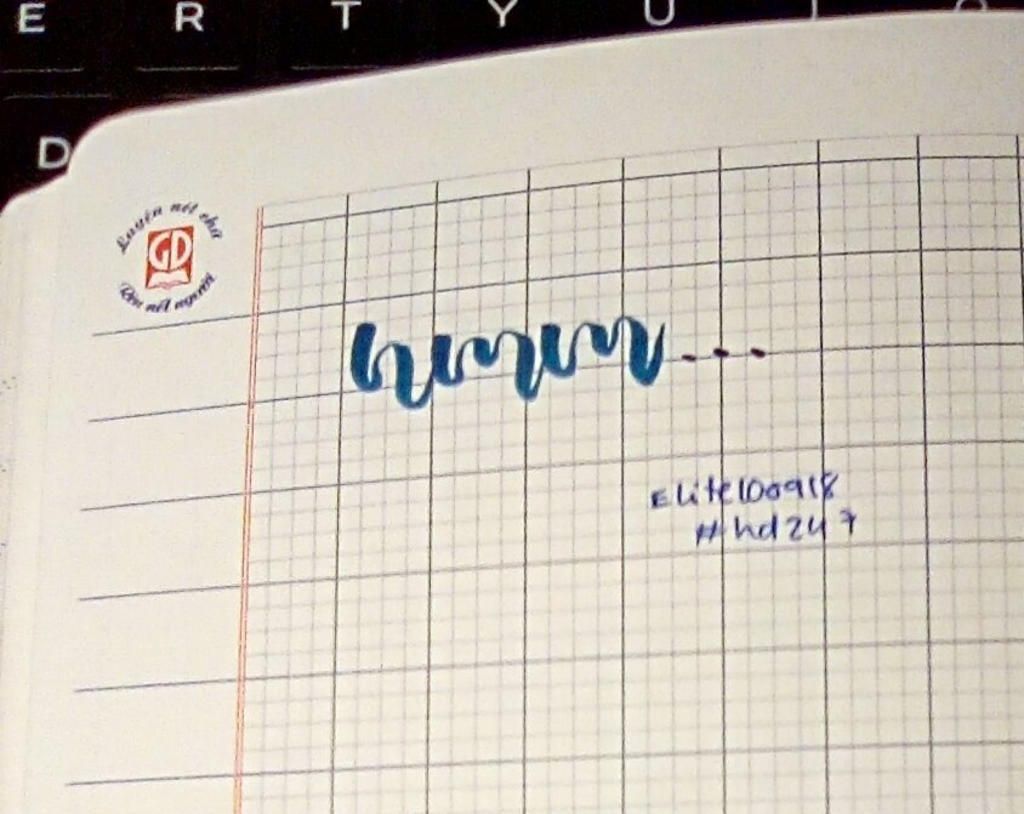 E R T Y U
D
Luyện nét chữ
GD
Rèn nết người
hmmm...
Elite100918
#hd247